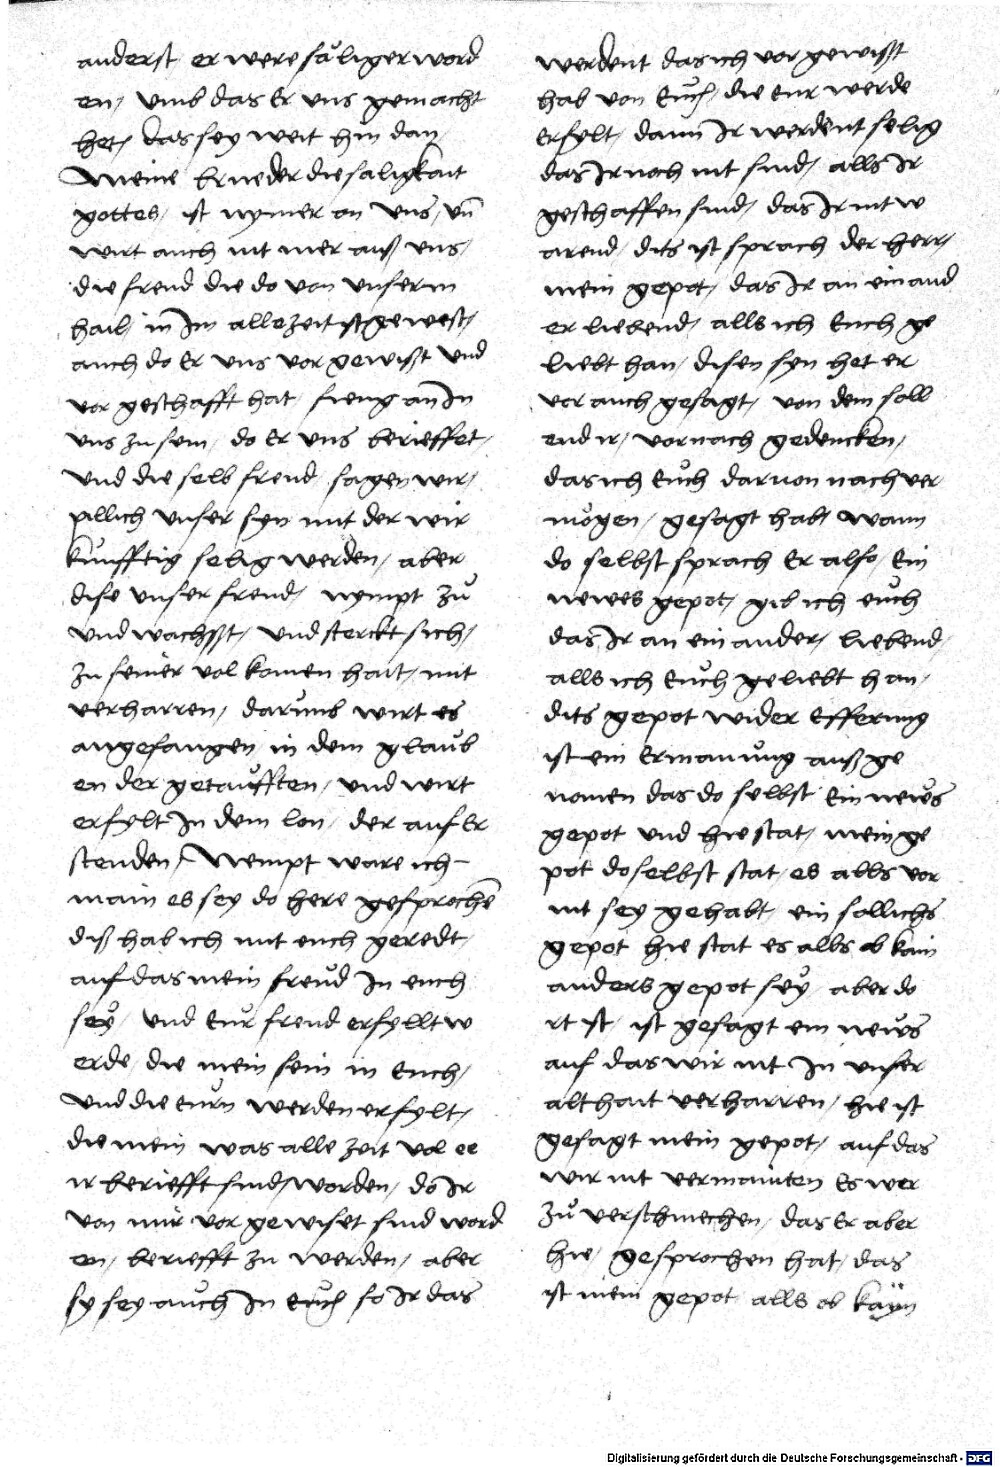 anderst er were säliger word
en, vmb das Er vns gemacht
het, das sey weit hin dan
Meine brueder die saligkait
gottes, ist nymer on vns, vn̄
wirt auch nit mer auß vns,
die freud die do von vnserm
hail, in Im alle zeit ist gewest,
auch do Er vns vor gewißt vnd
vor geschafft hat, fieng an In
vns zu sein, do Er vns berieffet,
vnd die selb freud, sagen wir,
pillich vnser syn mit der wir
künfftig selig werden, aber
dise vnser freud, nympt zů
vnd wachßt, vnd sterckt sich,
zu seiner volkomen hait, mit
verharren, darumb wirt es
angefangen in dem glaub
en der getaufften, vnd wirt
erfylt In dem lon, der auf Er
stenden, Wempt ware ich
main es sey do here gesprochē
diß hab ich mit euch geredt,
auf das mein freud In euch
sey, vnd Eur freud erfyllt w
erde, die mein sein in Euch,
vnd die Eurn werden erfylt,
die mein was alle zeit vol ee
ir beriefft sind worden, do Ir
von mir vor gewiset sind word
en, beriefft zu werden, aber
sy sey auch In Euch so Ir das
werdent das ich vor gewißt
hab von Euch, die Eur werde
Erfylt, dann Ir werdent selig
das Ir noch nit sind, alls Ir
geschaffen sind, das Ir nit w
arend, dits ist sprach der herr,
mein gepot, das Ir an einand
er liebend, alls ich Euch ge
liebt han, disen syn het er
vor auch gesagt, von dem soll
end ir, vornach gedencken,
das ich Euch daruon nach ver
mögen, gesagt hab, wann
do selbst sprach Er also, Ein
newes gepot, gib ich euch
das Ir an ein ander, liebend,
alls ich Euch geliebt han,
dits gepot wider Efferung
ist ein Ermanung auß ge
nomen das do selbst Ein news
gepot vnd hie stat, mein ge
pot do selbst stat, es alls vor
nit sey gehabt, ein sollichs
gepot hie stat es alls ob kain
anders gepot sey, aber do
rt ist, ist gesagt ein news
auf das wir nit In vnser
althait verharren, hie ist
gesagt mein gepot, auf das
wir nit vermainten Es wer
zů verschmechen, das Er aber
hie, gesprochen hat, das
ist mein gepot alls ob kaÿn
Digitalisierung gefördert durch die Deutsche Forschungsgemeinschaft - DFG